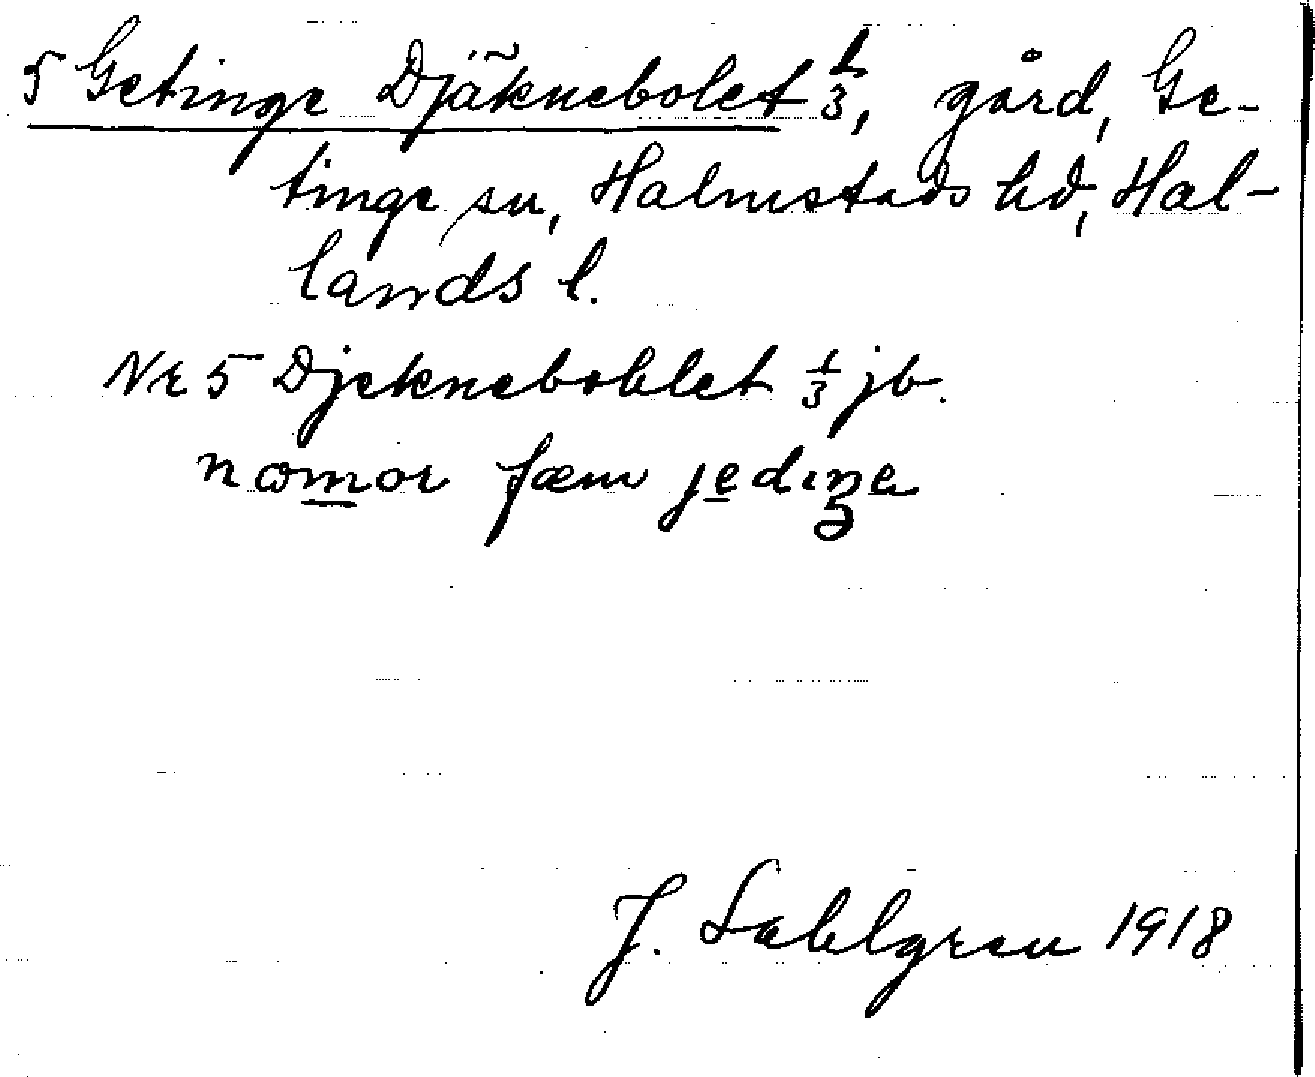 5 Getinge Djäknebolet 1/3, gård, Ge-
tinge sn, Halmstads hd, Hal-
lands l.
Nr 5 Djekneboblet 1/3 jb.
nomor fæm jediŋe
J. Sahlgren 1918